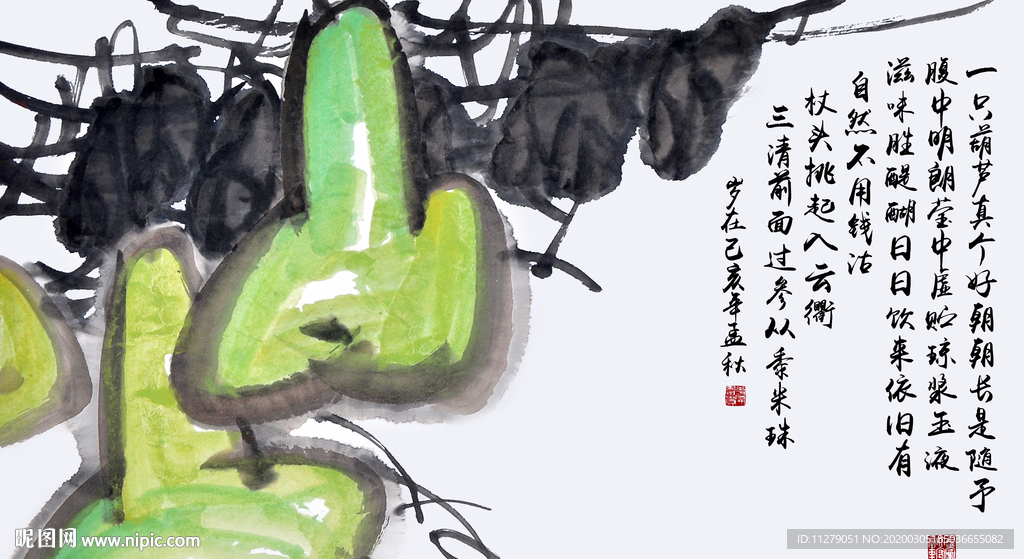 一只葫芦真个好朝朝长是随予
腹中明朗莹中虚贮琼浆玉液
滋味胜醍醐日日饮来依旧有
自然不用钱沽
杖头挑起入云衢
三清前面过参从黍米珠
岁在己亥年孟秋
昵图网 www.nipic.com
ID:11279051 NO:20200305185036655082